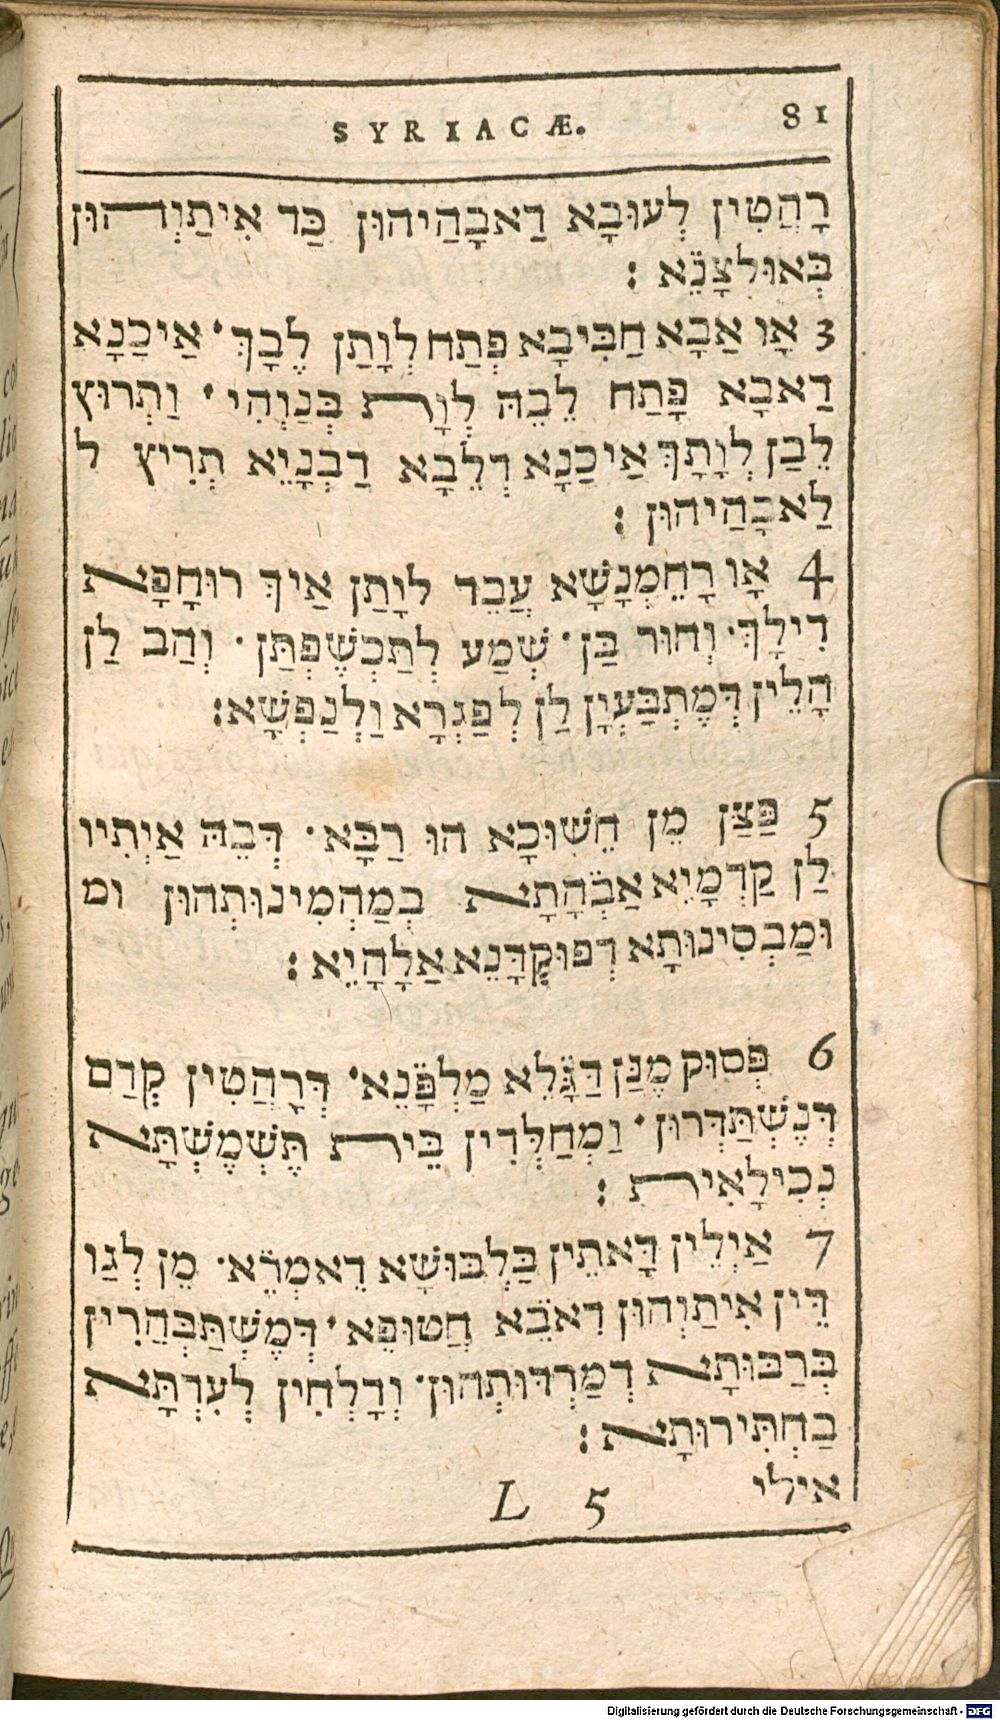 SYRIACÆ. 81
רָהֲטִין לְעוּבָא דַאבָהַיהוּן כַּד אִיתַוְהוּן
בְּאוּלצָנֵא :
3 אָו אַבָא חַבִּיבָא פְּתַח לְוָתַן לֶבָךְ· אַיכַנָא
דַאבָא פָּתַח לֵבֵהּ לְוָת בְּנַוְהִי · וַתְרוּץ
לֵבַן לְוָתָךְ אַיכַנָא דְלֵבָא דַבְנַיֵא תְרִיץ ל
לַאבָהַיהוּן :
4 אָו רָחֵמְנָשָׁא עֲבֵד לוָתַן אַיךְ רוּחָפָא
דִילָךְ· וְחוּר בַּן· שְׁמַע לְתַכְשֶׁפְתַּן · וְהַב לַן
הָלֵין דְּמֶתְבַּעְיָן לַן לְפַגְרָא וַלְנַפְשָׁא:
5 פַּצָּן מֵן חֵשׁוּכָא הוּ רַבָּא· דְּבֵהּ אַיְתִיו
לַן קַדְמָיֵא אַבְּהָתָא בְמַהְמִינוּתְהוּן ומ
וּמַבְסִינוּתָא דְפוּקְדָּנֵא אַלָהָיֵא :
6 פְּסוּק מֶנַּן דַּגָּלֵא מַלְפָּנֵא· דְּרָהֲטִין קְדַם
דְּנֶשְׁתַּדְּרוּן· וַמְחַלְּדִין בֵּית תֶּשְׁמֶשְׁתָּא
נְכִילָאִית :
7 אַיְלֵין דָּאתֵין בַּלְבוּשָׁא דֵאמְרֵא· מֵן לְגַו
דֵּין אִיתַוְהוּן דִאבֵא חֲטוּפֵא · דְּמֶשְׁתַּבְּהֲרִין
בְּרַבּוּתָא דְמַרְדּוּתְהוּן· וְדָלְחִין לְעִדְתָּא
בַחְתִּירוּתָא :
אילי
L 5
Digitalisierung gefördert durch die Deutsche Forschungsgemeinschaft - DFG